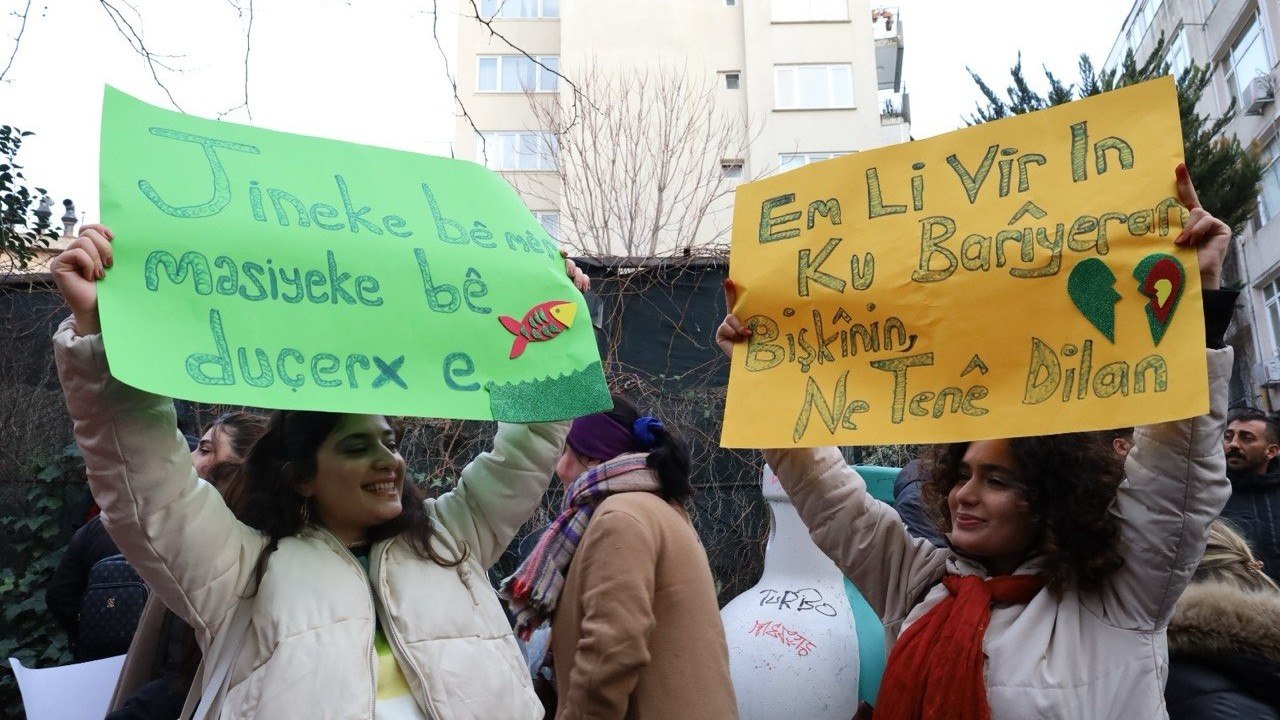 Jineke bê mêr
masiyeke bê
duçerx e
Em Li Vir In
Ku Bariyeran
Bişkînin,
Ne Tenê Dilan
TURBO